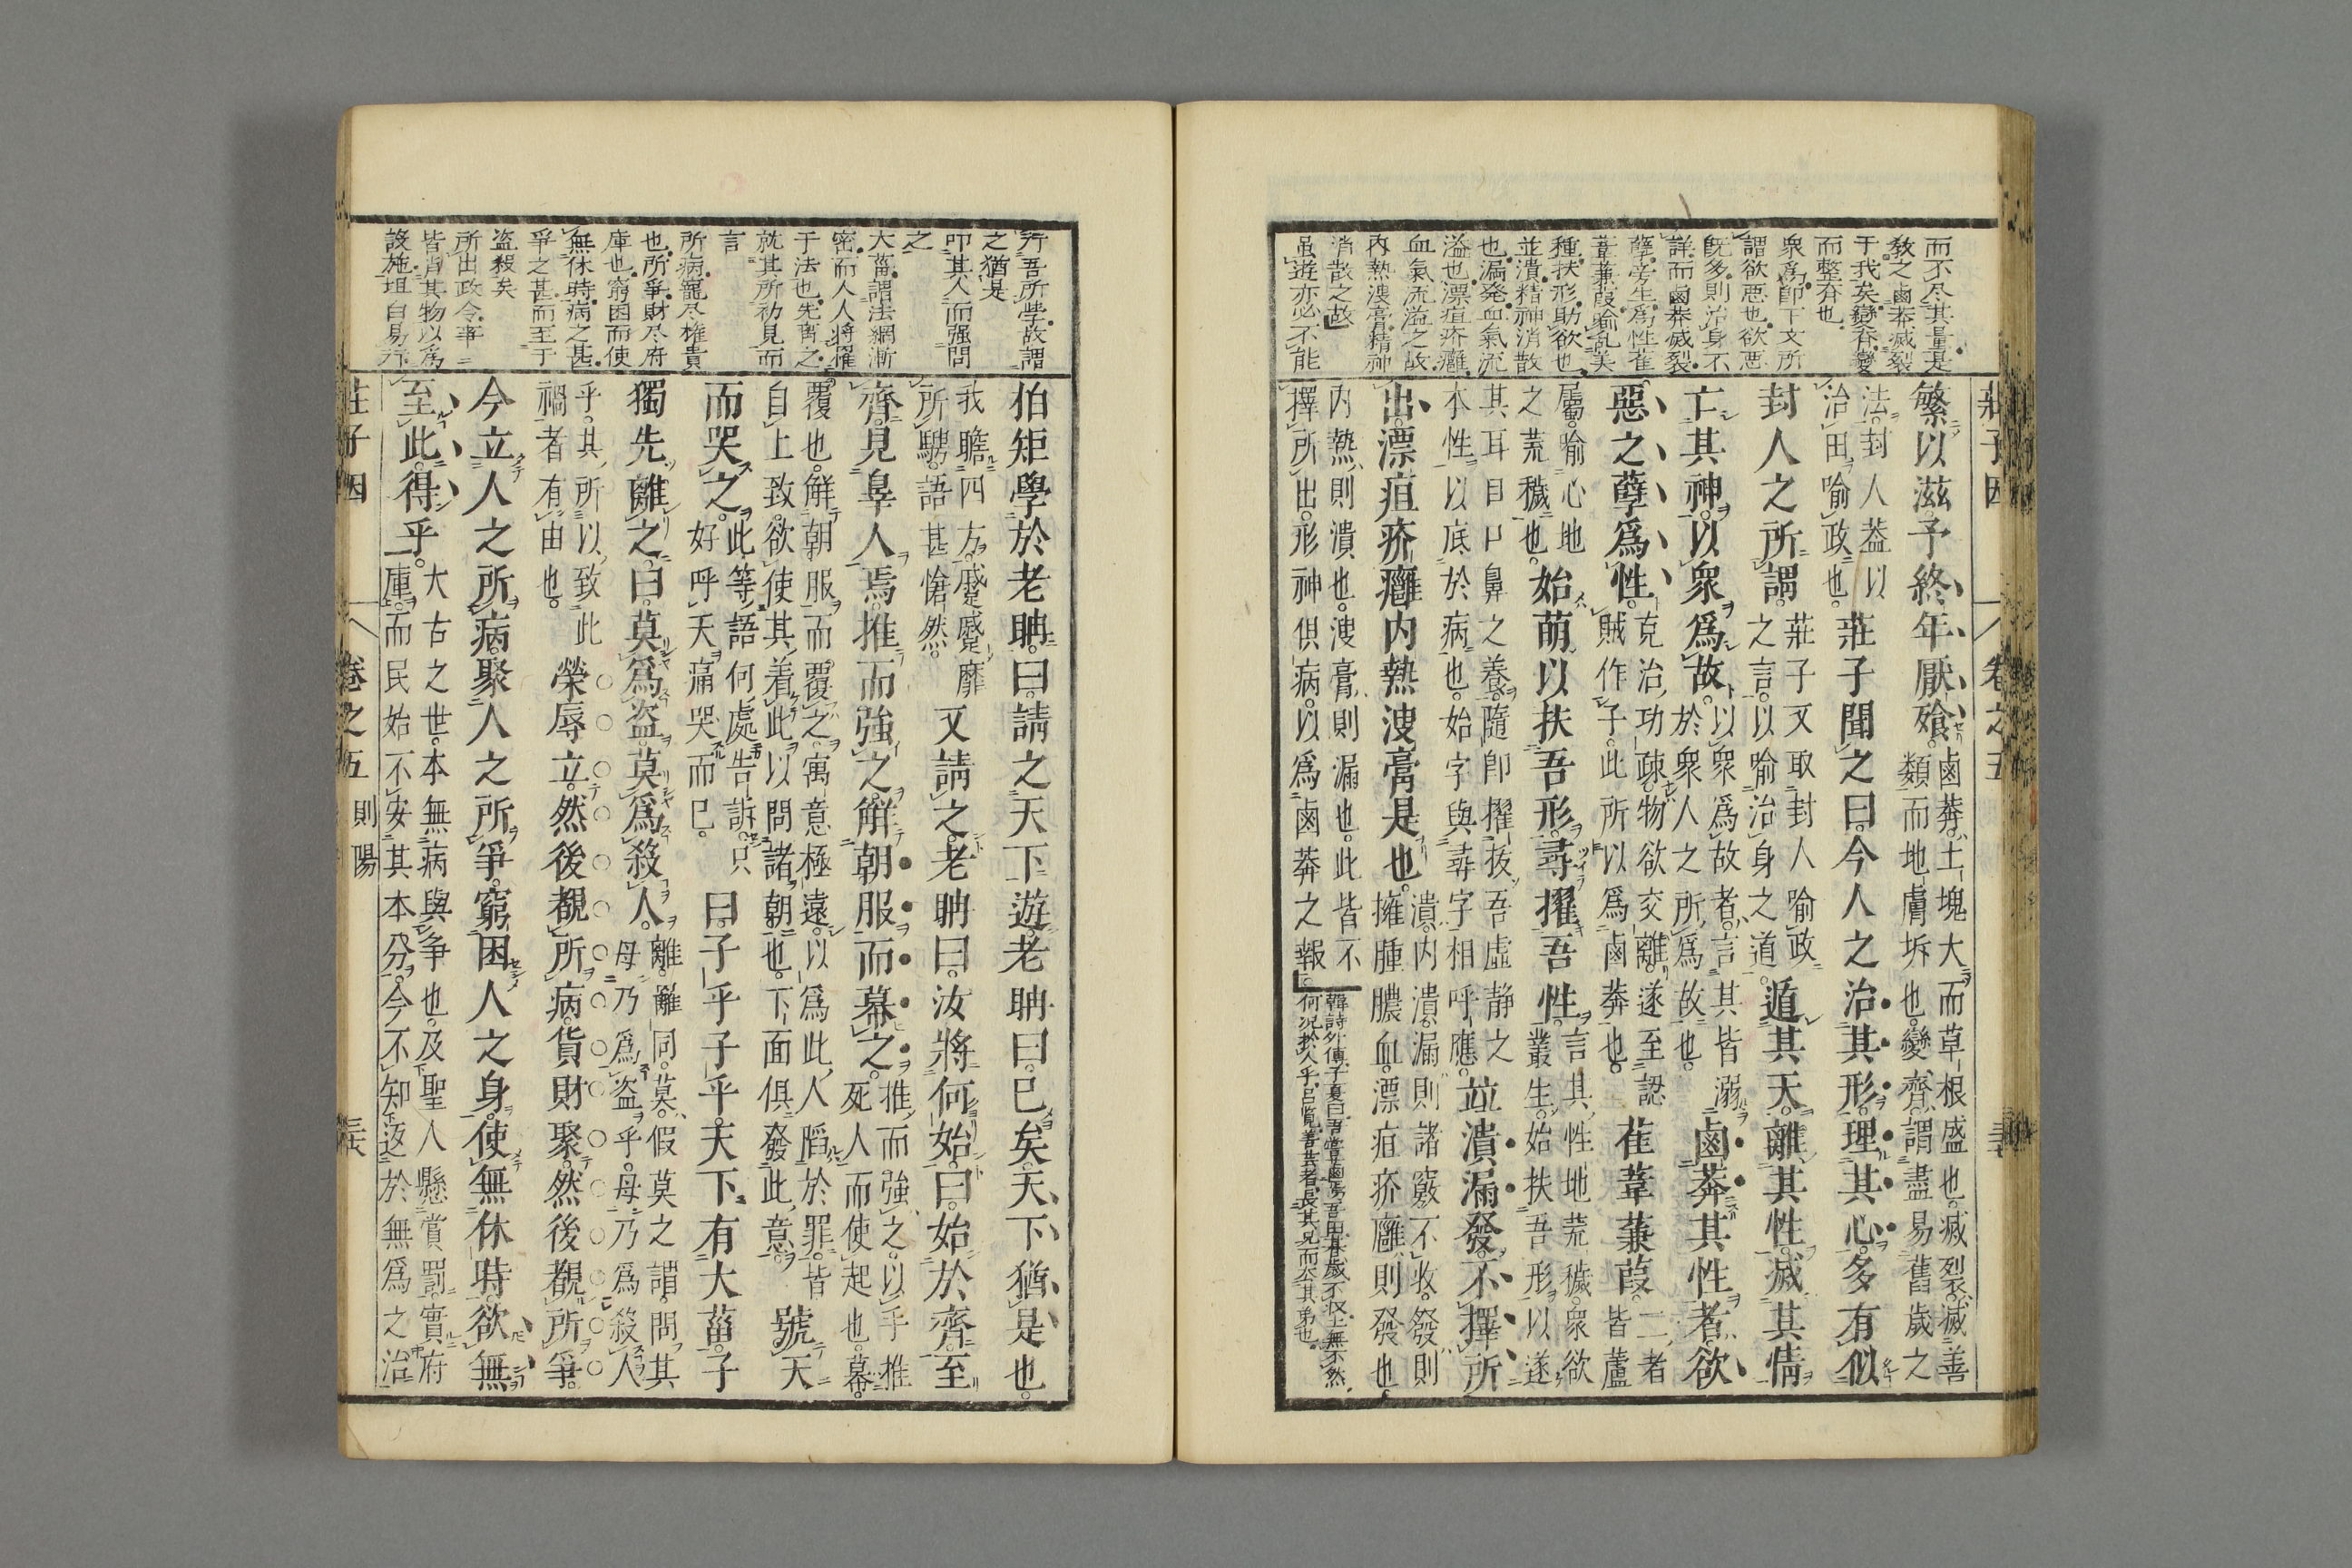 而不尽其量是
教之鹵莽滅裂
于我矣變齊變
而整齊也
衆爲卽下文所
謂欲惡也欲惡
既多則治身不
詳而鹵莽滅裂
孽旁生爲性萑
葦蒹葭喻乱美
種扶形助欲也
並潰精神消散
也漏発血氣流
溢也漂疽疥癰
血氣流溢之故
内熱溲膏精神
消散之故
虽遊亦必不能
莊子因 卷之五
繁以滋予終年厭飧鹵莽土塊大而草根盛也滅裂滅善
類而地膚坼也變齊謂盡易舊歲之
法封人葢以
治田喻政也莊子聞之曰今人之治其形理其心多有似
封人之所謂莊子又取封人喻政
之言以喻治身之道遁其天離其性滅其情
亡其神以衆爲故以衆爲故者言其皆溺
於衆人之所爲故也鹵莽其性者欲
惡之孽爲性克治功疎物欲交離遂至認
賊作子此所以爲鹵莽也萑葦蒹葭二者
皆蘆
屬喻心地
之荒穢也始萌以扶吾形尋擢吾性言其性地荒穢衆欲
叢生始扶吾形以遂
其耳目口鼻之養隨卽擢拔吾虛静之
本性以底於病也始字與尋字相呼應竝潰漏發不擇所
出漂疽疥癰内熱溲膏是也潰内潰漏則諸竅不收發則
擁腫膿血漂疽疥癰則發也
内熱則潰也溲膏則漏也此皆不
擇所出形神俱病以爲鹵莽之報
韓詩外傳子夏曰
行吾所學故謂
之猶是
叩其人而强問
之
大菑謂法綱漸
密而人人將罹
于法也先離之
就其所初見而
言
所病寵尽権貴
也所爭財尽府
庫也窮困而使
無休時病之甚
爭之甚而至于
盗殺矣
所出政令事
皆消其物以爲
設施坦白易行
伯矩學於老聃曰請之天下遊老聃曰已矣天下猶是也
我瞻四方蹙蹙靡
所騁語甚愴然又請之老聃曰汝將何始曰始於齊至
齊見辜人焉推而強之解朝服而幕之推而強之以手推
死人而使起也幕
覆也解朝服而覆之寓意極遠以爲此人陷於罪皆
自上致欲使其着此以問諸朝也下面俱發此意號天
而哭之此等語何處告訴只
好呼天痛哭而已曰子乎子乎天下有大菑子
獨先離之曰莫爲盗莫爲殺人離離同莫假莫之謂問其
毋乃爲盗乎毋乃爲殺人
乎其所以致此
禍者有由也榮辱立然後覩所病貨財聚然後覩所爭
今立人之所病聚人之所爭窮困人之身使無休時欲無
至此得乎大古之世本無病與争也及聖人懸賞罰實府
庫而民始不安其本分今不知返於無爲之治
莊子因 卷之五 則陽